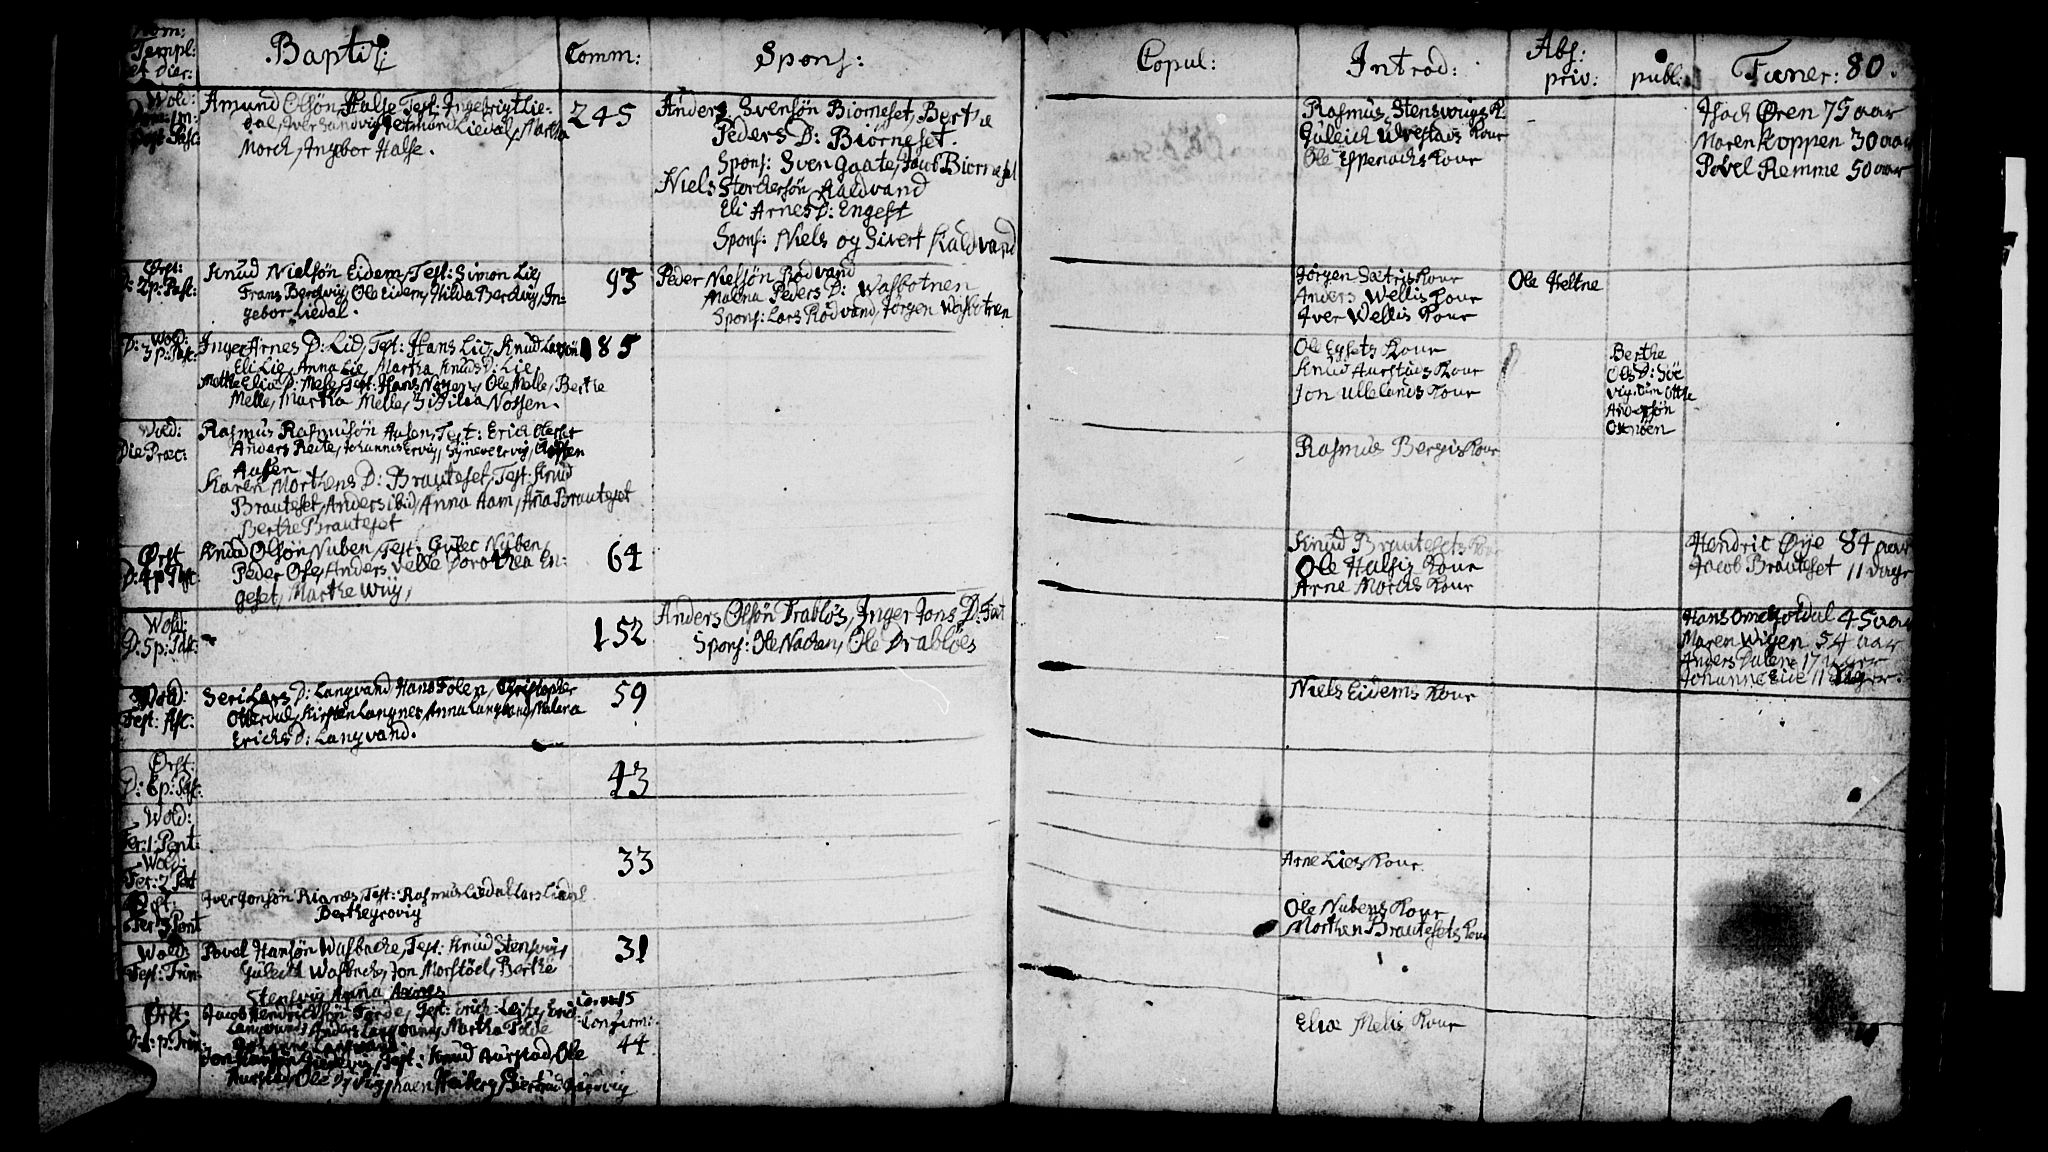 Nom:
Templ:
et dier:
Baptiz:
Comm:
Spons:
Copul:
Introd:
Abs:
priv:
publ:
Funer: 80.
Wold:
Dom: 1 m:
Post Pasc:
Amund Olsøn Halse, Test: Ingebrigt Lie-
dal, Iver Sandvig, Detmand Liedal, Martha
Morch, Ingebor Halse.
245
Anders Svensøn Biorneset, Berthe
Peders D: Biørneset.
Spons: Sven Gaate, Jacob Biorneset
Niels Storchersøn Kaldvand
Eli Arnes D: Engeset
Spons: Niels og Sivert Kaldvand
Rasmus Stensvigs K.
Gulleich Ulvestads Kone
Ole Espenachs Kone
Isach Øren 75 aar
Maren Koppen 30 aar
Povel Remme 50 aar
Ørst:
D: 2 p: Pasc:
Knud Nielsøn Eidem, Test: Simon Lie,
Frans Berdvig, Ole Eidem, Hilda Berdvig, In-
gebor Liedal.
93
Peder Nielsøn Rødvand
Malena Peders D: Wasbotnen
Spons: Lars Rødvand, Jørgen Wasbotnen
Jørgen Sætris Kone
Anders Wellis Kone
Iver Wellis Kone
Ole Heltne
Wold:
D: 3 p: Pasc:
Inger Arnes D: Lid, Test: Hans Lie, Knud Larsøn
Eli Lie, Anna Lie, Martha Knuds D: Lie,
Mette Eliæ D: Mele, Test: Hans Nøyen, Ole Melle, Berthe
Melle, Martha Melle, Sidilia Nossen.
185
Ole Eysets Kone
Knud Aurstads Kone
Jon Ullelands Kone
Berthe
Ols D: Søe
vig cum Otthe
Andersøn
Osnøen
Wold:
Die Præc:
Rasmus Rasmusøn Aasen, Test: Erich
Anders Reite, Johannis Ervig, Synneve Ervig,
Aasen
Karen Morthens D: Brauteset, Test: Knud
Brauteset, Anders ibid, Anna Aam, Aña Brauteset
Berthe Brauteset
Rasmus Bergis Kone
Ørst
D: 4 p: Pasc:
Knud Olsøn Nuben, Test: Gulec Nuben,
Peder Ose, Anders Velle Dorothea En-
geset, Marthe Wiig,
64
Knud Brautesets Kone
Ole Halsis Kone
Arne Morchs Kone
Hendric Øye 84 aar
Jacob Brauteset 11 dager
Wold:
D: 5 p: Pasc:
152
Anders Olsøn Drabløs, Inger Jons D:
Spons: Ole Nachen, Ole Drabløes
Hans 45 aar
Maren Wigen 54 aar
Anders Dalene 17 uger
Johanne Lie 11 dager.
Wold:
Fest: Asc:
Seri Lars D: Langvand Hans Folen, Christopher
Otterdal, Kirsten Langnes, Anna Langvand, Malena
Erichs D: Langvand.
59
Niels Eidems Kone
Ørst:
D: 6 p: Pasc:
43
Wold:
Fer: 1: Pent:
Wold:
Fer: 2 Pent
33
Arne Lies Kone
Ørst:
Fer: 3 Pent
Iver Jonsøn Rianes, Test: Rasmus Liedal Lars Liedal
Berthe grovig
Ole Nubens Kone
Morthen Brautesets Kone
Wold:
Fest: Trin:
Povel Hansøn Wasbache, Test: Knud Stensvig,
Gulleich Wasbache, Jon Morstøel, Berthe
Stensvig Anna Aarnes
31
Ørst:
D: 1: p: Trin:
Jacob Hendrichsøn Førde, Test: Erich Leite, Erich
Langvand, Anders Langvand, Martha Førde
Johanne Langvand.
Jon Test: Knud Aurstad, Ole
Aurstad, Ole
Comm 15
Confirm:
44
Eliæ Melis Kone